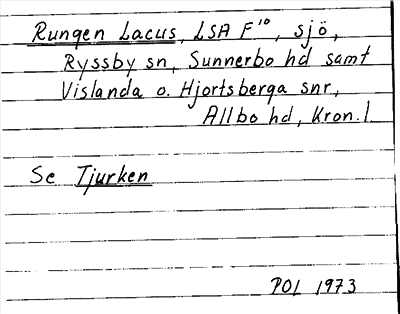 Rungen Lacus, LSA F¹⁰, sjö,
Ryssby sn, Sunnerbo hd samt
Vislanda o. Hjortsberga snr,
Allbo hd, Kron. l
Se Tjurken
POL 1973